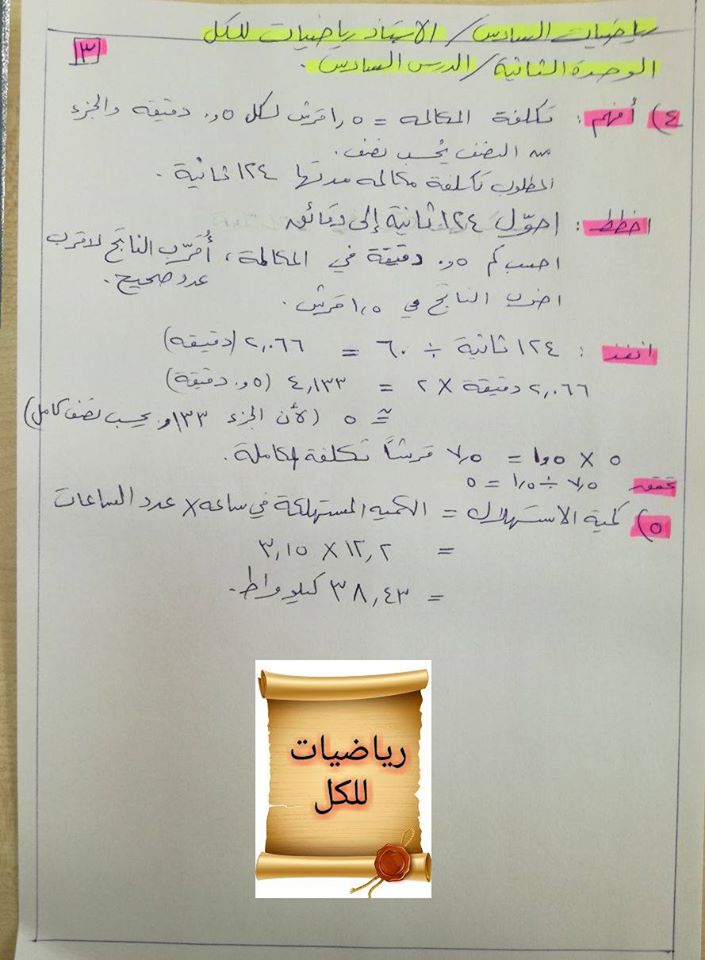 رياضيات السادس / الأستاذ رياضيات للكل
الوحدة الثانية / الدرس السادس .
٣
٤) أفهم : تكلفة المكالمه = ١,٥ قرش لكل ٠,٥ دقيقه والجزء
من النصف يُحسب نصف .
المطلوب تكلفة مكالمه مدتها ١٢٤ ثانية .
اخطط : احوّل ١٢٤ ثانية إلى دقائق
احسب كم ٠,٥ دقيقة في المكالمة ، أُقرّب الناتج لاقرب
عدد صحيح .
اضرب الناتج في ١,٥ قرش .
انفذ : ١٢٤ ثانية ÷ ٦٠ = ٢,٠٦٦ (دقيقه)
٢,٠٦٦ دقيقة × ٢ = ٤,١٣٣ (٠,٥ دقيقة)
≈ ٥ (لأن الجزء ٠,١٣٣ يحسب نصف كامل)
٥ × ١,٥ = ٧,٥ قرشاً تكلفة المكالمة .
تحقق ٧,٥ ÷ ١,٥ = ٥
٥) كمية الاستهلاك = الكميه المستهلكة في ساعه × عدد الساعات
= ١٢,٢ × ٣,١٥
= ٣٨,٤٣ كيلو واط .
رياضيات
للكل